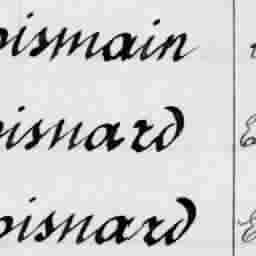 oismain
oisnard
oisnard